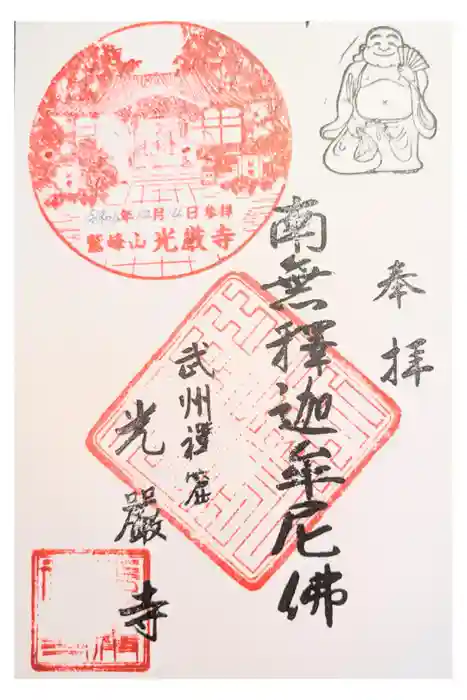 奉拝
南無釋迦牟尼佛
武州禅窟
光嚴寺
年 月 日参拝
鷲峰山 光厳寺